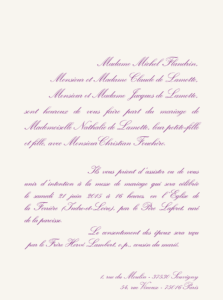 Madame Michel Flandrin,
Monsieur et Madame Claude de Lamotte,
Monsieur et Madame Jacques de Lamotte,
sont heureux de vous faire part du mariage de
Mademoiselle Nathalie de Lamotte, leur petite-fille
et fille, avec Monsieur Christian Fouchère.
Ils vous prient d'assister ou de vous
unir d'intention à la messe de mariage qui sera célébrée
le samedi 21 juin 2013 à 16 heures, en l'Église de
la (Indre-et-Loire), par le Père
de la paroisse.
Le consentement des époux sera reçu
par le Frère Hervé Lambert, o.p., cousin du marié.
1, rue du Moulin - Savigny
54, rue - 75016 Paris